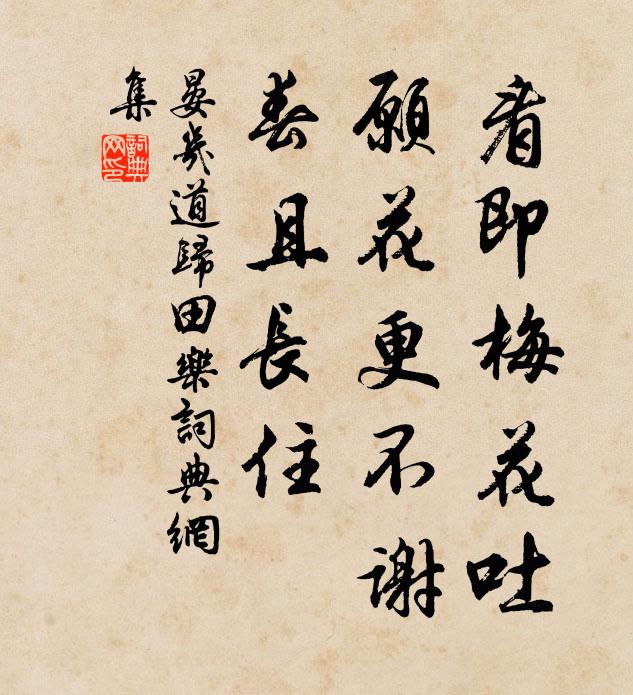 看即梅花吐
願花更不謝
春且長住
晏幾道歸田樂詞典網
集
詞典
网印